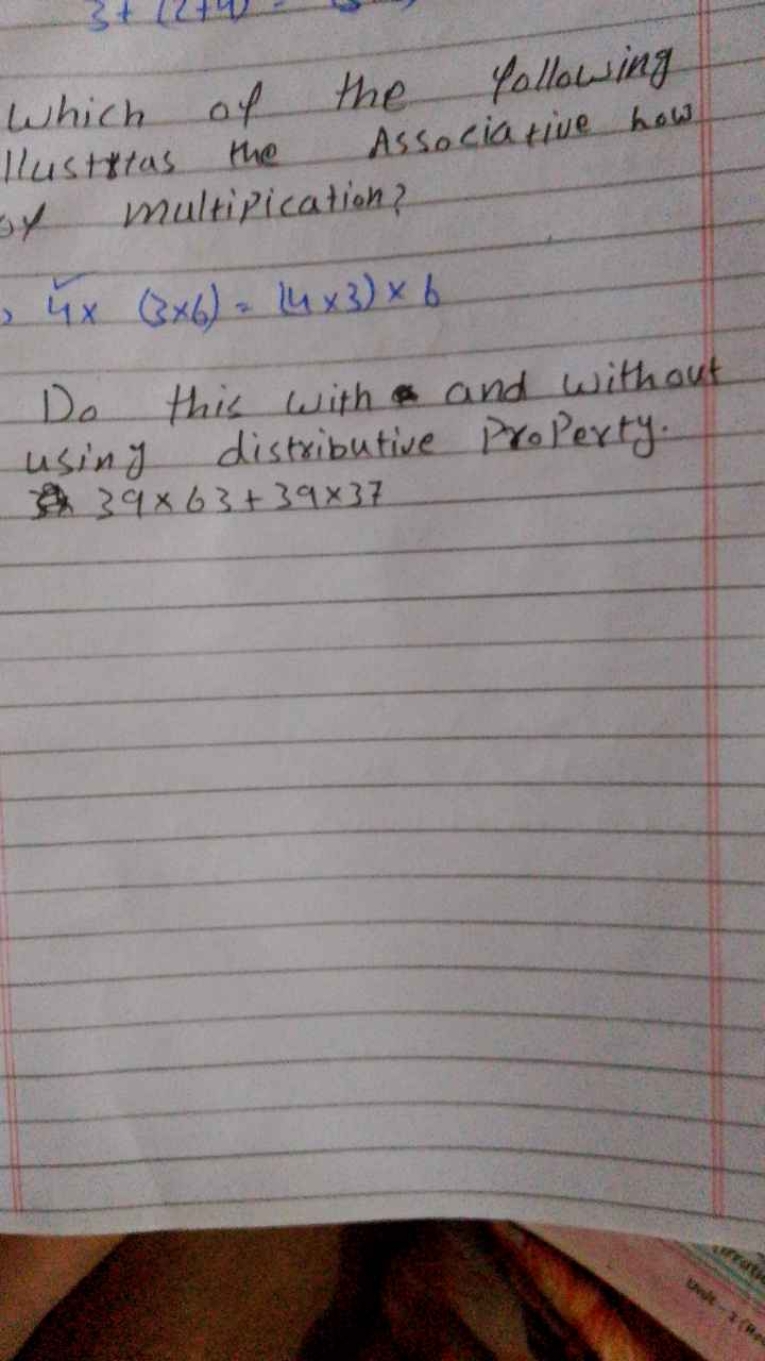 3 + (2+4) =
Which of the following
llustrtas the Associative how
of multipication?
4x (3x6) = (4x3) x 6
Do this with and without
using distributive Property.
39x63+39x37
Unit - 1